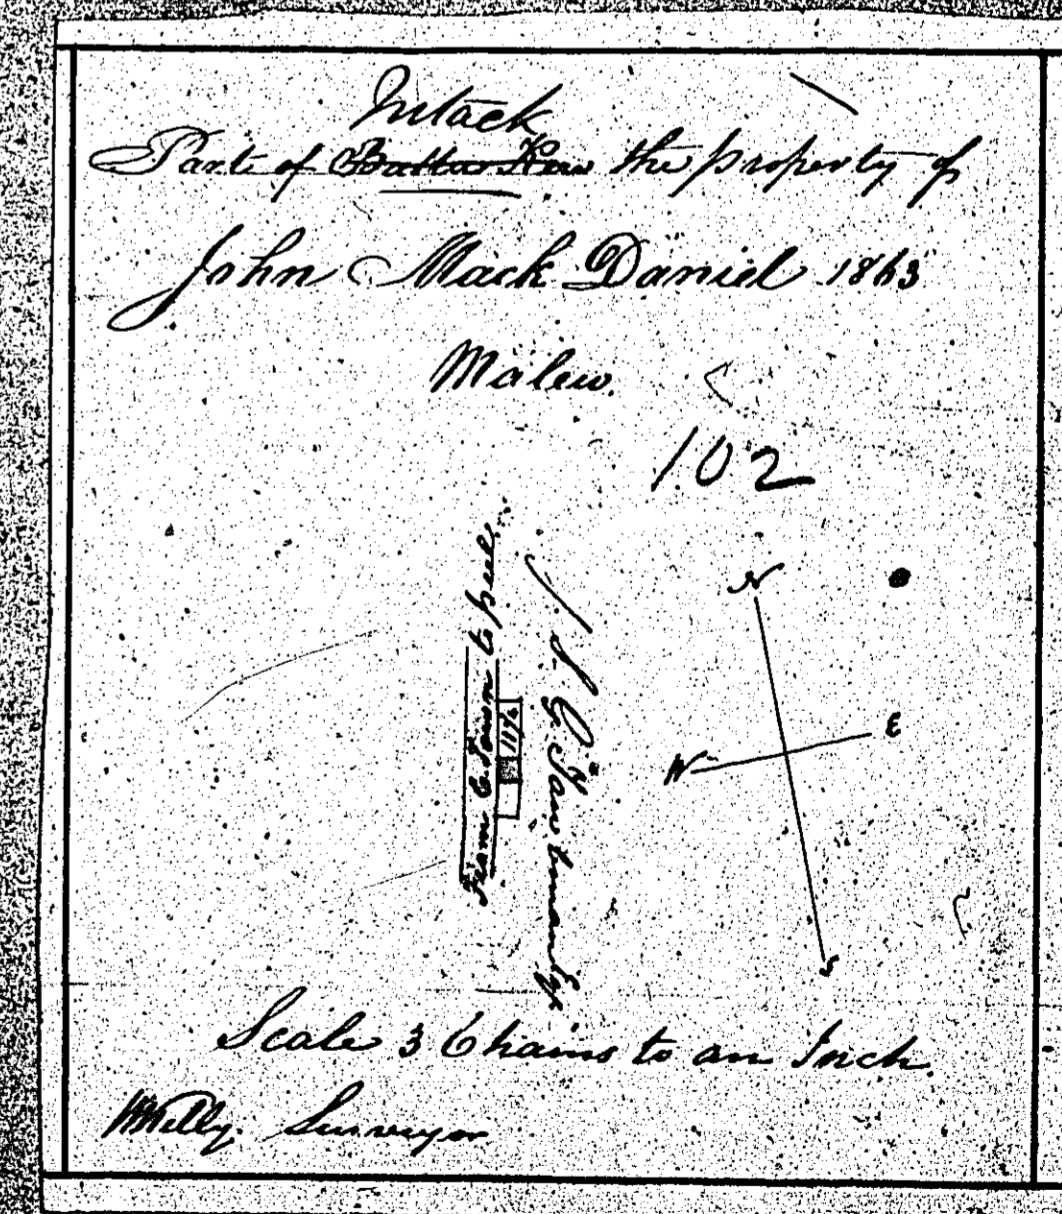 Intack
Part of the property of
John Mack Daniel 1863
Malew.
102
From C. Town to peel.
117/2
J. S. G.
N
E
W
S
Scale 3 Chains to an Inch.
Surveyor